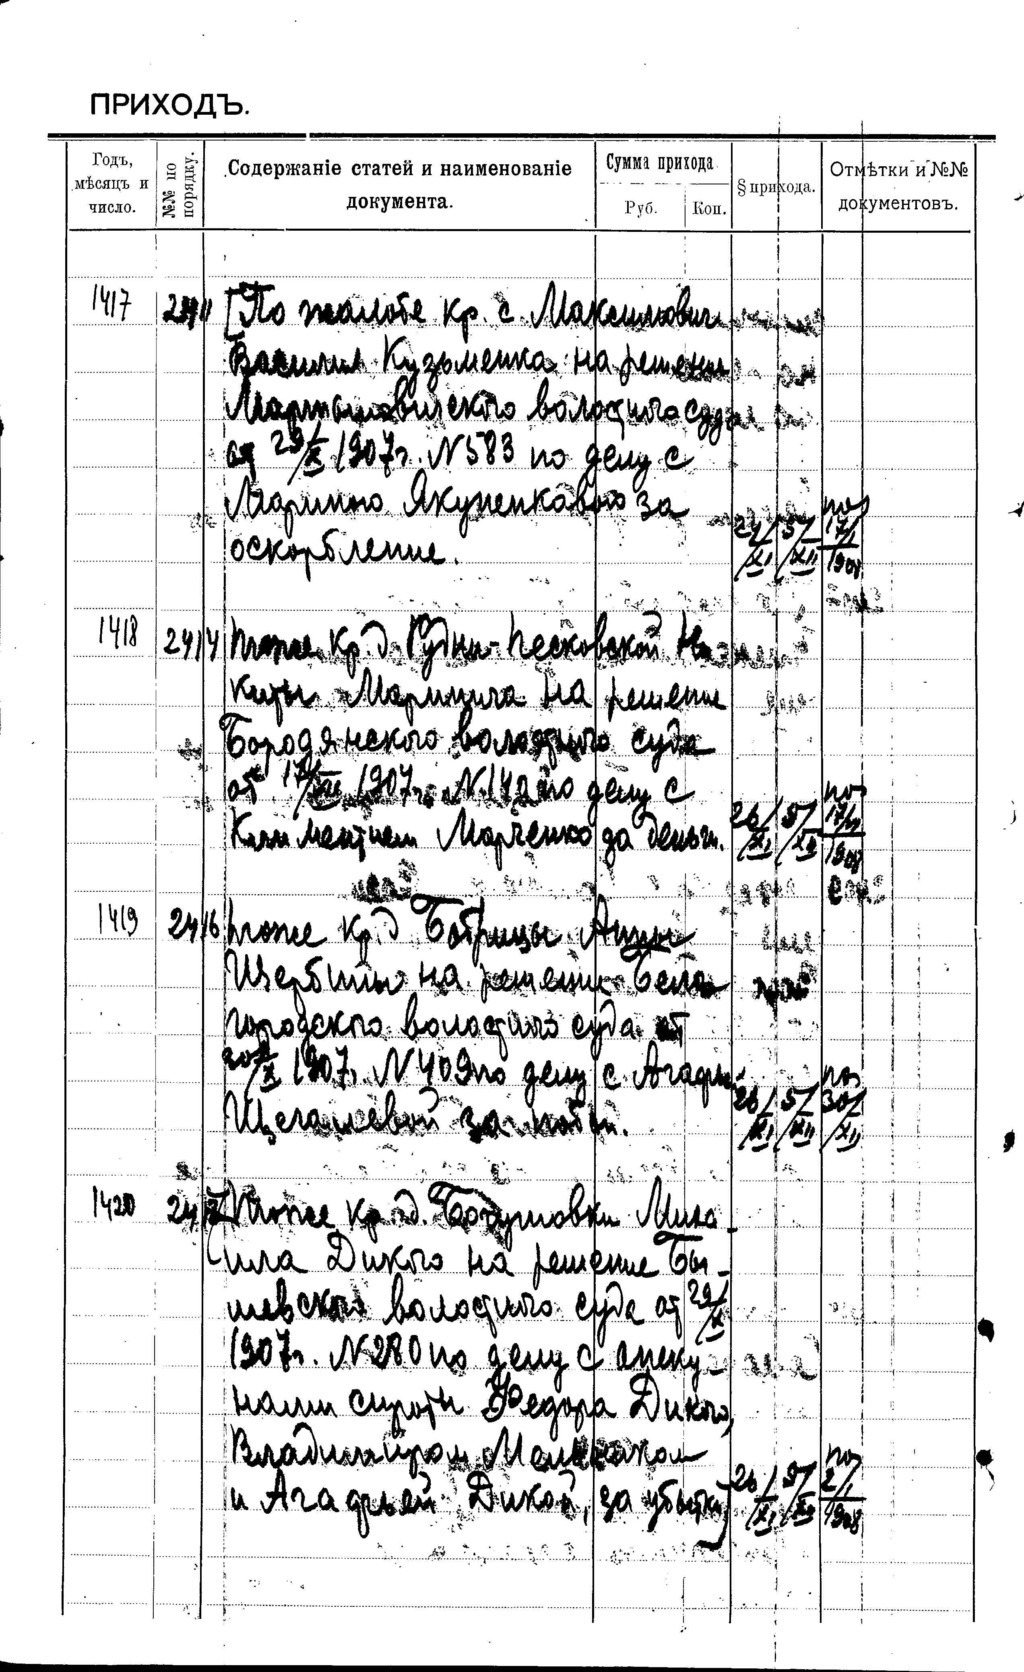 ПРИХОДЪ.
Годъ, мѣсяцъ и число.
№№ по порядку.
Содержаніе статей и наименованіе документа.
Сумма прихода
Руб. Коп.
§ прихода.
Отмѣтки и №№ документовъ.
1417 2411 По жалобе кр. с. Максимович
Василия Кузьменка на решение
Мартыновичского волостного суда
от 29/X 1907 г. N 583 по делу с
Мариною Якуненковою за
оскорбление. 24/XI 5/XII по 17/I 1908
1418 2414 тоже кр. д. Рудни-Песковской Ни
киты Маринича на решение
Бородянского волостного суда
от 1907 г. N 142 по делу с
Климентием Марченко за деньги. 26/XI 5/XII по 17/I 1908
1419 2416 тоже кр. д. Анны
Щербины на решение Бело
городского волостного суда от
1907 г. N 409 по делу с Агафьей
Щегалевой за побои. 26/XI 5/XII по 30/XII
1420 2417 тоже кр. д. Миха
ила Дикого на решение Бы-
шевского волостного суда от 29/X
1907 г. N 280 по делу с опеку-
нами сироты Федора Дикого,
Владимиром Мельником
и Агафьей Дикой, за убытки 26/XI 5/XII по 2/I 1908